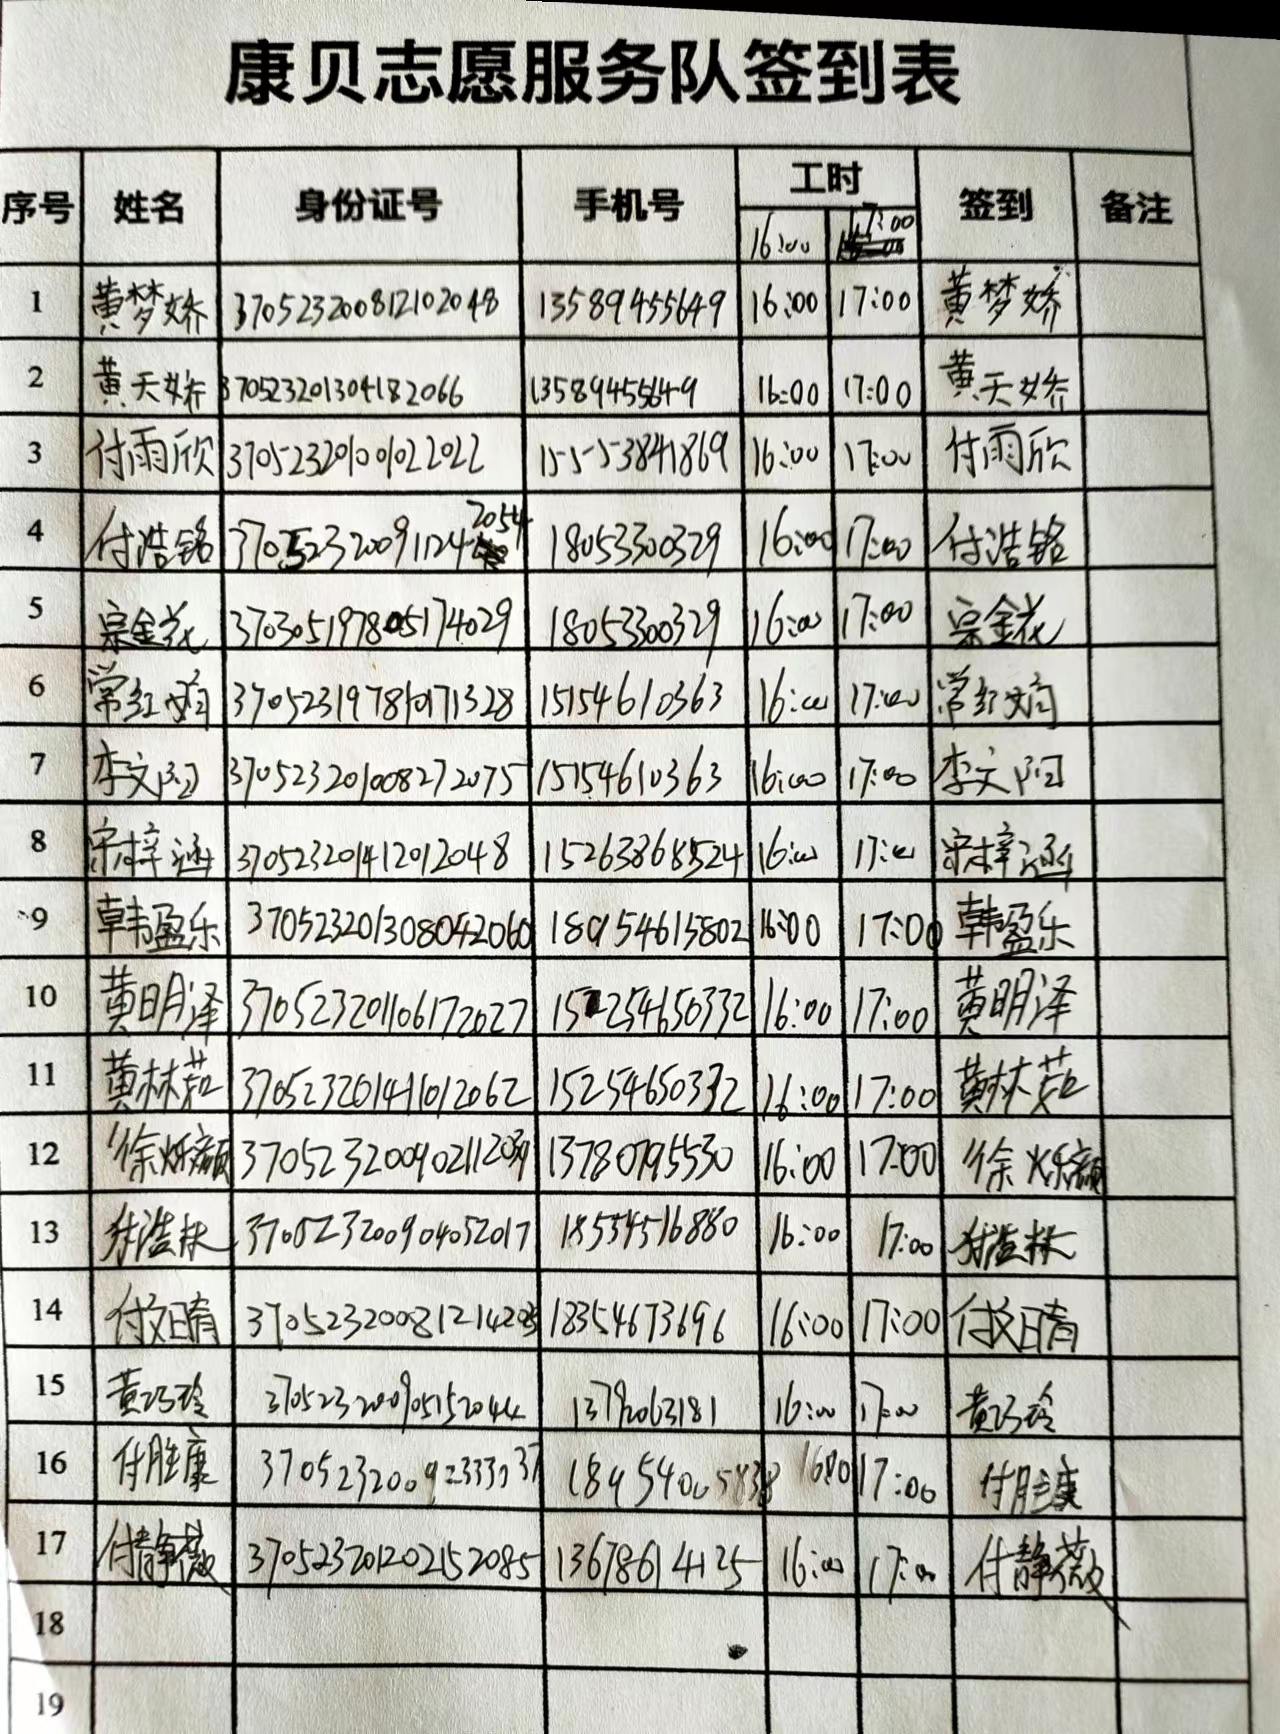 康贝志愿服务队签到表
序号 姓名 身份证号 手机号 工时 签到 备注
16:00 17:00
1 黄梦娇 370523200812102048 13589455649 16:00 17:00 黄梦娇
2 黄天娇 370523201304182066 13589455649 16:00 17:00 黄天娇
3 付雨欣 370523201001022022 15553841869 16:00 17:00 付雨欣
4 付浩铭 370523200911242054 18053300329 16:00 17:00 付浩铭
5 宗金花 370305197805174029 18053300329 16:00 17:00 宗金花
6 常红娟 15154610363 16:00 17:00 常红娟
7 李文阳 370523201008272075 15154610363 16:00 17:00 李文阳
8 宋梓涵 370523201412012048 16:00 17:00 宋梓涵
9 韩盈乐 370523201308042060 16:00 17:00 韩盈乐
10 黄明泽 370523201106172027 16:00 17:00 黄明泽
11 黄林茹 370523201411012062 15254650332 16:00 17:00 黄林茹
12 徐烁颜 13780795530 16:00 17:00 徐烁颜
13 370523200904052017 18554516880 16:00 17:00
14 付文晴 18354673696 16:00 17:00 付文晴
15 黄巧玲 370523200905152044 13792063181 16:00 17:00 黄巧玲
16 付胜康 17:00 付胜康
17 付静薇 370523201202152085 13678614125 16:00 17:00 付静薇
18
19